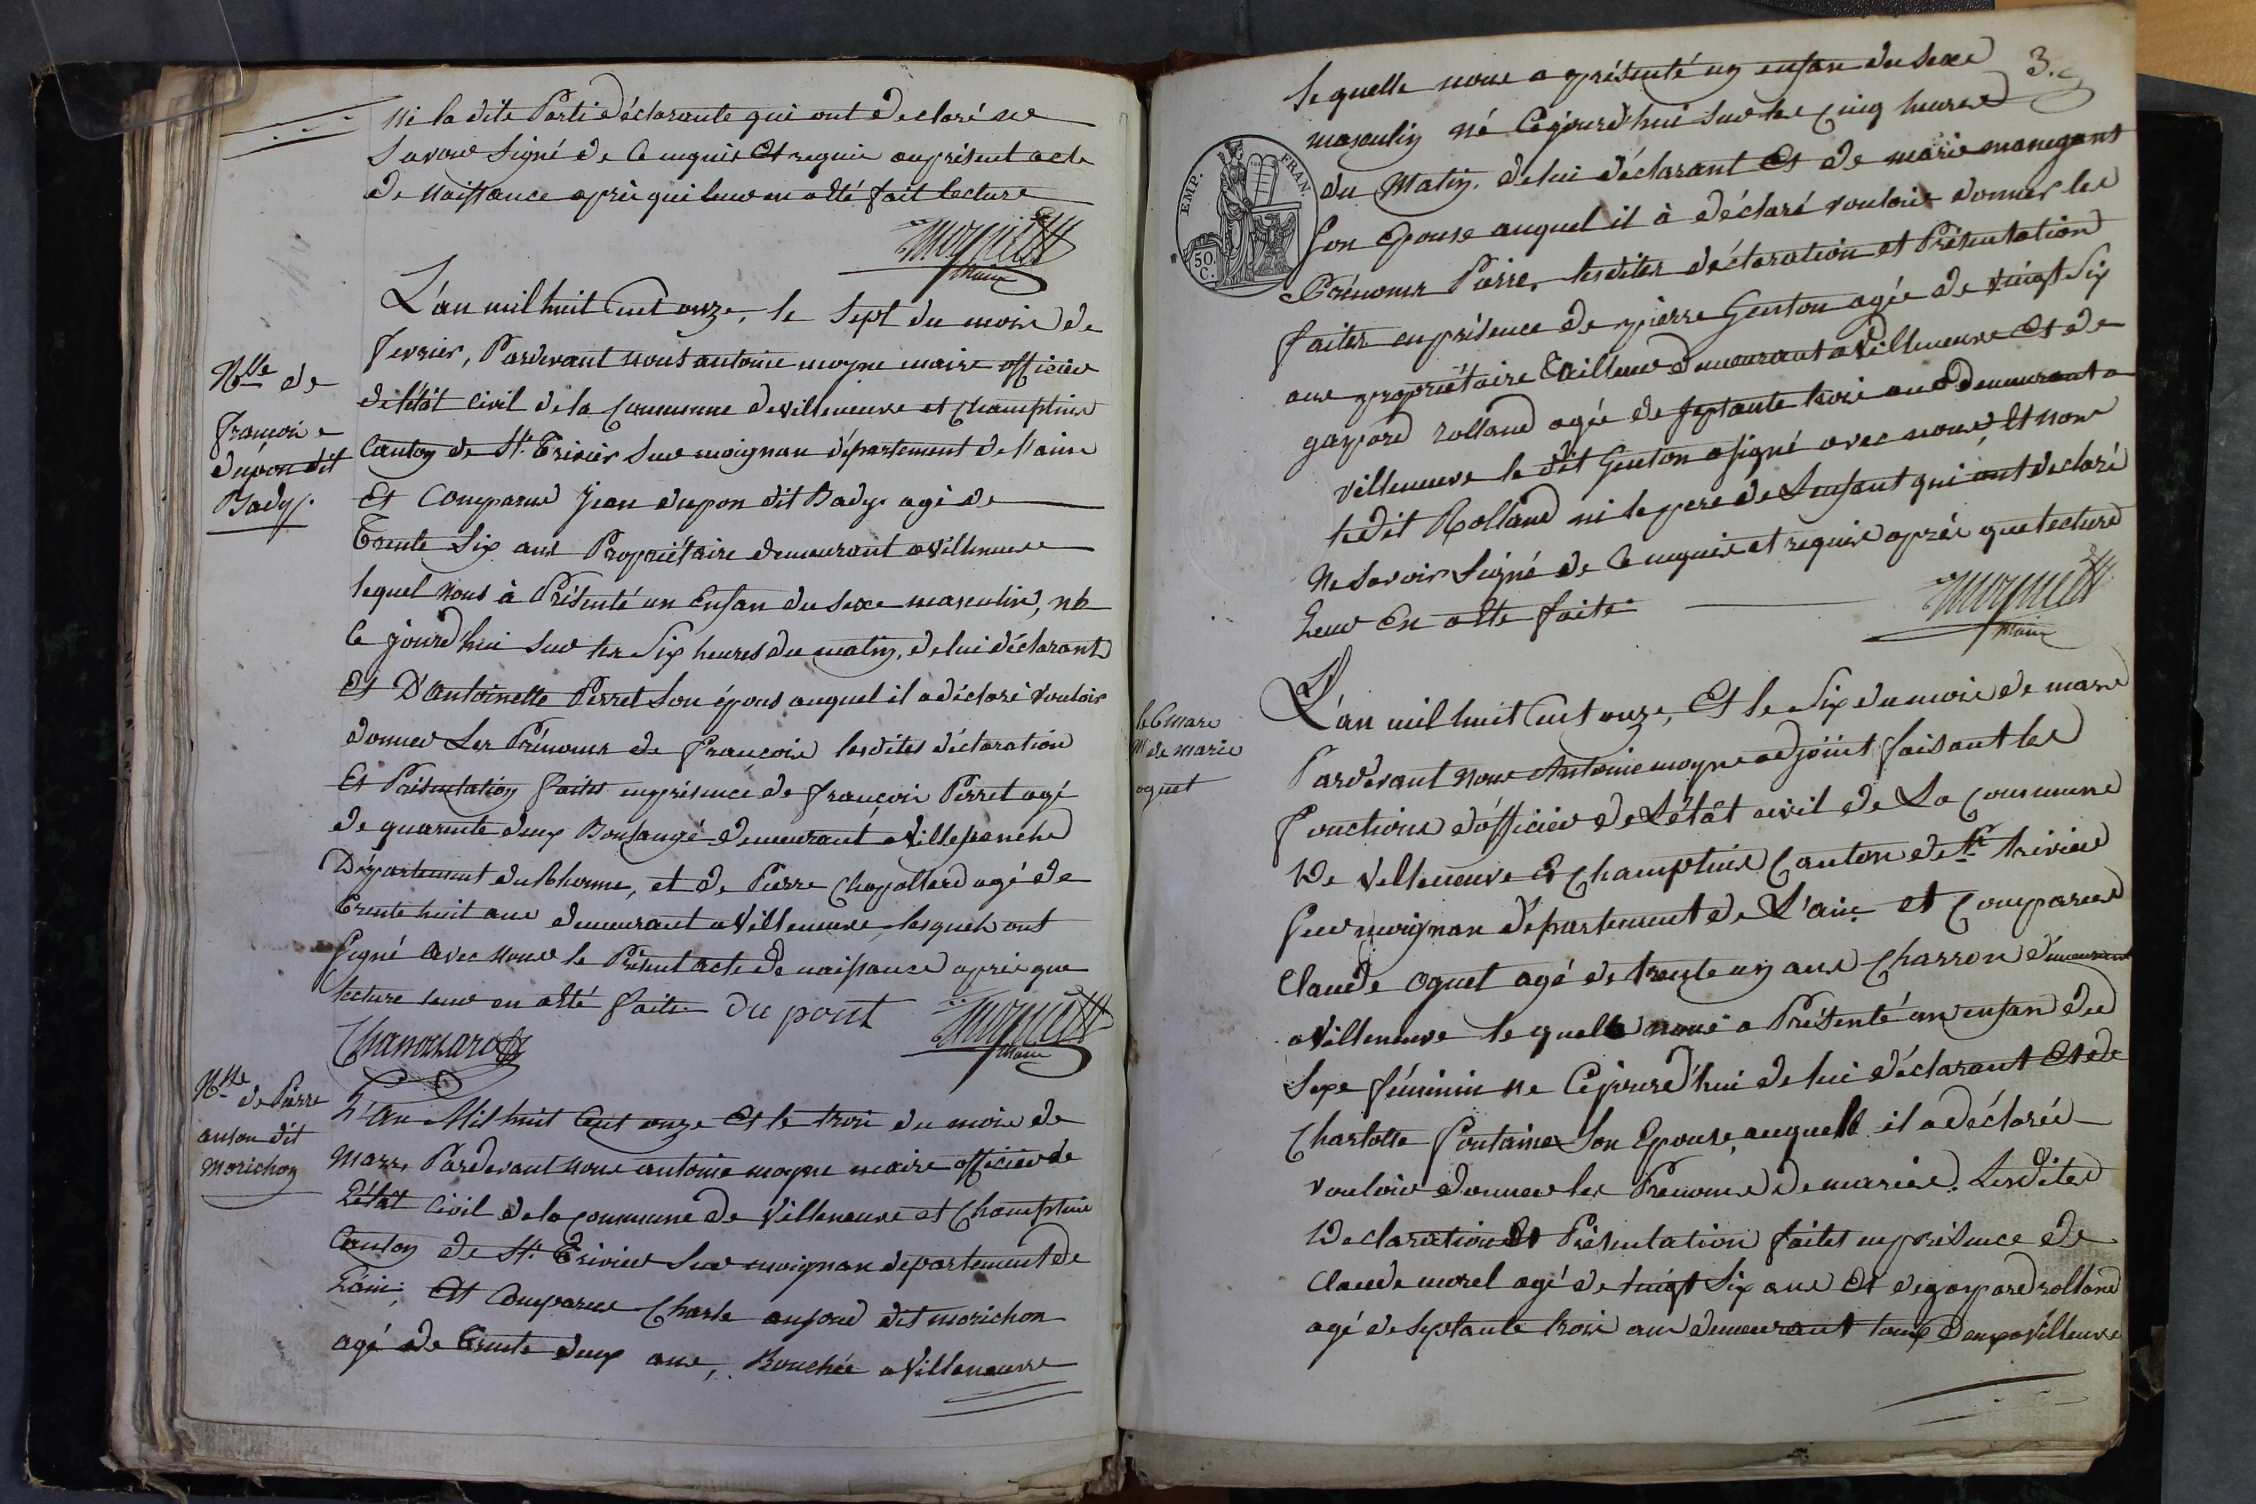 ni la dite Parti déclarante qui ont declaré ne
Savoir Signé de ce enquis Et requis au présent acte
de Naissance après qui leur en a été fait lecture
Moyne
Maire
L'an mil huit Cent onze, le Sept du mois de
fevrier, Pardevant nous antoine moyne maire officier
de l'état Civil de la Commune de villeneuve et Champtein
Canton de St. Trivier Sur moignan département de l'ain
Et Comparus Jean dupon dit Bady agé de
Trente Six ans Propriétaire demeurant a Villeneuve
lequel Nous à Présenté un Enfan du Sexe masculin, né
Ce jourd'hui Sur les Six heures du matin, de lui déclarant
Et D'antoinette Perret Son épous auquel il a déclaré vouloir
donner Les Prénoms de françois lesdites déclaration
Et Présentation faites en présence de françois Perret agé
de quarante deux Boulangé demeurant a Villefranche
Département du Rhonne, et de Pierre Chapollard agé de
trente huit ans demeurant a Villeneuve lesquels ont
Signé avec nous le Présent acte de naissance après que
lecture leur en a été faite Du pont
Moyne
Maire
Nsse de
françois
dupon dit
Bady.
Nsse de Pierre
anson dit
Morichon
L'an Mil huit Cent onze Et le trois du mois de
Mars, Pardevant nous antoine moyne maire officier de
L'état Civil de la Commune de Villeneuve et Champtein
Canton de St. Trivier Sur moignan département de
L'ain; Et Comparus Charle ansond dit morichon
agé de trente deux ans, Bouchée a Villeneuve
3.
lequelle nous a présenté un enfan du Sexe
masculin né Cejourd'hui Sur les Cinq heures
du Matin. de lui déclarant Et de marie manigant
Son Epouse auquel il à déclaré vouloir donner les
Prénoms Pierre, lesdites déclaration et Présentation
faites en présence de pierre Genton agée de vingt Six
ans propriétaire Tailleur demeurant a Villeneuve Et de
gaspard rolland agée de septante trois ans demeurant a
villeneuve le dit Genton a signé avec nous Et non
ledit Rolland ni le pere de L'enfant qui ont déclaré
Ne Savoir Signé de Ce enquis et requis après que lecture
Leur En a ete faite.
Moyne
Maire
EMP. FRAN.
50. C.
le 6 mars
N de marie
oguet
L'an mil huit Cent onze, Et le Six du mois de mars
Pardevant nous Antoine moyne adjoint faisant les
fonctions d'officier de L'état civil de La Commune
De Villeneuve & Champtein Canton de St trivier
Sur moignan département de L'ain et Comparus
Claude oguet agé de trente un ans Charron demeurant
a Villeneuve lequelle nous a Présenté un enfan du
Sexe féminin ne Cejourd'hui de lui déclarant Et de
Charlotte fontaine Son Epouse, auquelle il a déclarée
vouloir donner les Prenoms de marie. Lesdites
Declaration Et Présentation faites en présence de
Claude morel agé de vingt Six ans Et de gaspard rolland
agé de Septante trois ans demeurant tous deux a Villeneuve